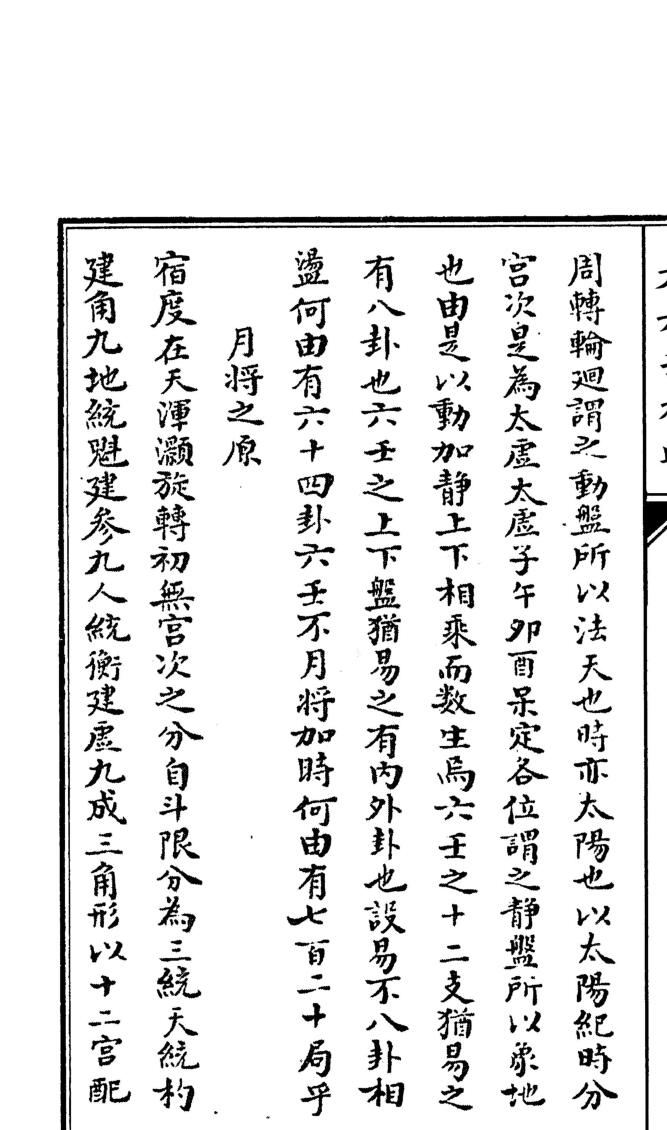 周轉輪廻謂之動盤所以法天也時亦太陽也以太陽紀時分
宮次是為太虛太虛子午卯酉呆定各位謂之靜盤所以象地
也由是以動加靜上下相乘而数生焉六壬之十二支猶易之
有八卦也六壬之上下盤猶易之有內外卦也設易不八卦相
盪何由有六十四卦六壬不月将加時何由有七百二十局乎
月将之原
宿度在天渾灝旋轉初無宮次之分自斗限分為三統天統杓
建角九地統魁建參九人統衡建虛九成三角形以十二宮配